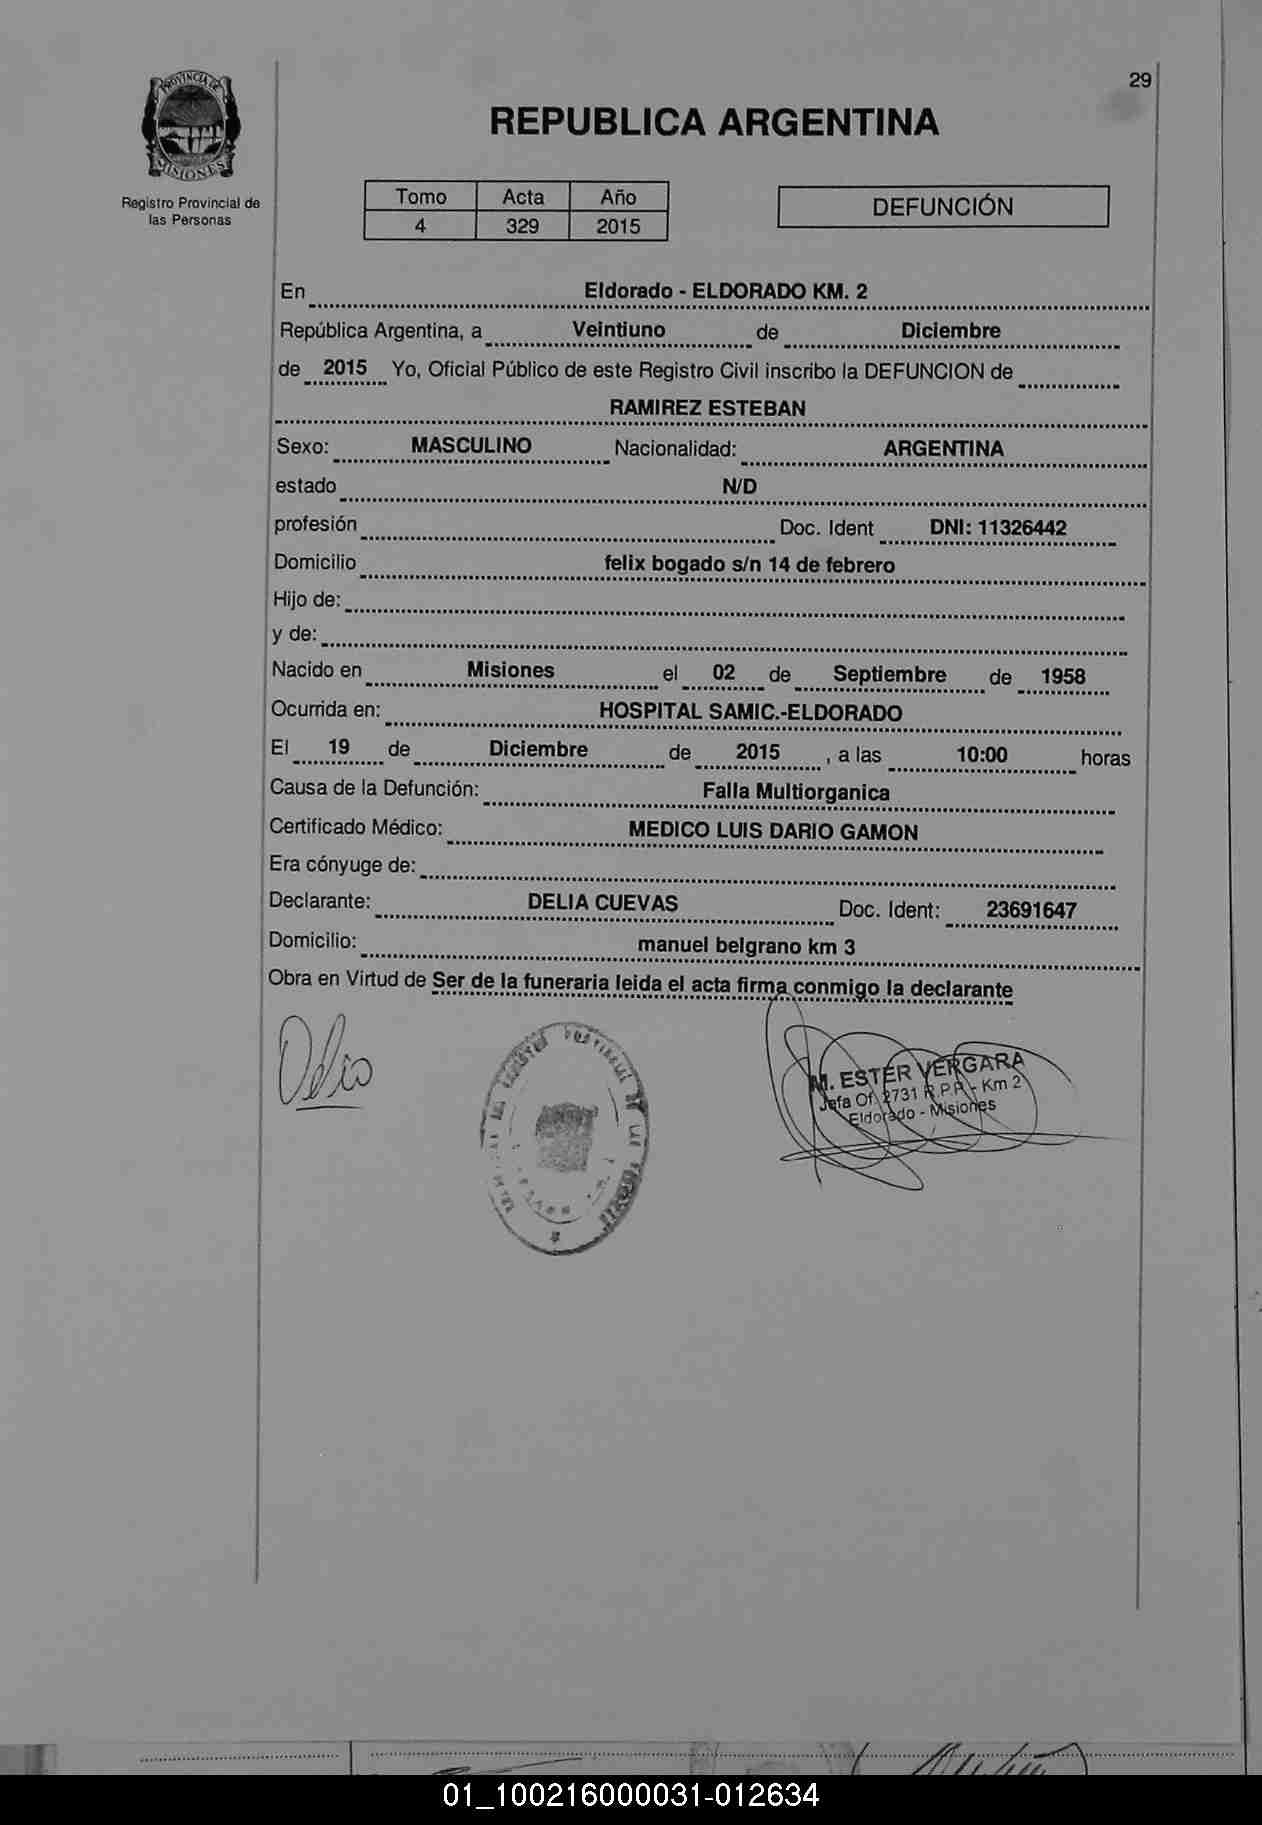 29
PROVINCIA DE
MISIONES
Registro Provincial de
las Personas
REPUBLICA ARGENTINA
Tomo Acta Año
4 329 2015
DEFUNCIÓN
En Eldorado - ELDORADO KM. 2
República Argentina, a Veintiuno de Diciembre
de 2015 Yo, Oficial Público de este Registro Civil inscribo la DEFUNCION de
RAMIREZ ESTEBAN
Sexo: MASCULINO Nacionalidad: ARGENTINA
estado N/D
profesión Doc. Ident DNI: 11326442
Domicilio felix bogado s/n 14 de febrero
Hijo de:
y de:
Nacido en Misiones el 02 de Septiembre de 1958
Ocurrida en: HOSPITAL SAMIC.-ELDORADO
El 19 de Diciembre de 2015 , a las 10:00 horas
Causa de la Defunción: Falla Multiorganica
Certificado Médico: MEDICO LUIS DARIO GAMON
Era cónyuge de:
Declarante: DELIA CUEVAS Doc. Ident: 23691647
Domicilio: manuel belgrano km 3
Obra en Virtud de Ser de la funeraria leida el acta firma conmigo la declarante
M. ESTER VERGARA
Jefa Of. 2731 R.P.P. - Km 2
Eldorado - Misiones
01_100216000031-012634